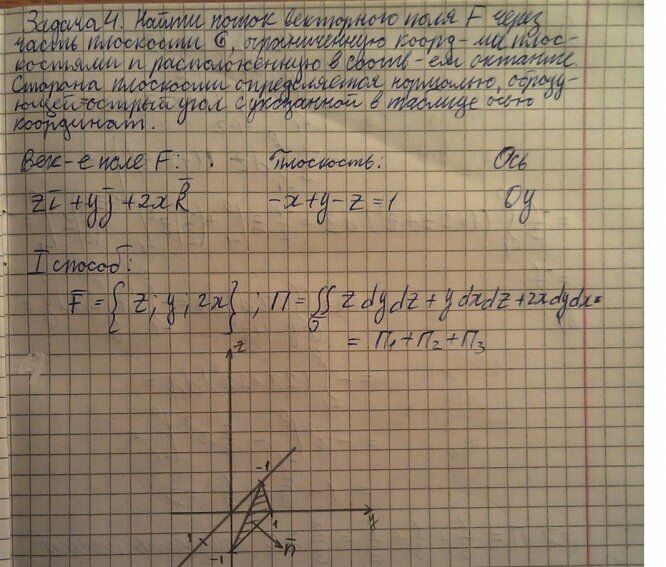 Задача 4. Найти поток векторного поля F через
часть плоскости G, ограниченную коорд-ми плос-
костями и расположенную в соотв-ем октанте.
Сторона плоскости определяется нормалью, образу-
ющей острый угол с указанной в таблице осью
координат.
Век-е поле F: Плоскость: Ось
zī + yj̄ + 2xk̄ -x+y-z=1 Oy
I способ:
F̄ = {z; y; 2x}; П = ∬ z dydz + y dxdz + 2x dydx =
σ
= П₁ + П₂ + П₃
z
-1
1
1
y
-1
n̄